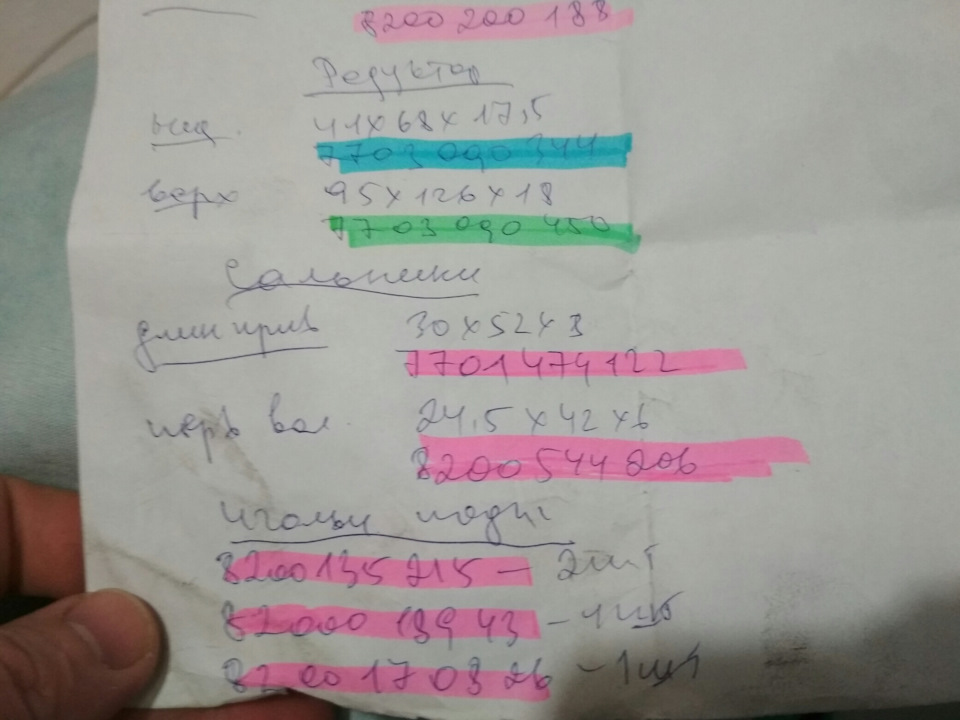 8200 200 188
Редуктор
41х68х17,5
7703 090 344
верх 95х126х18
7703 090 450
Сальники
30х52х8
7701 474 122
перв вал 24,5 х 42 х 6
8200 544 206
игольч подш
8200 135 215 - 2шт
82000 189 43 - 1 шт
8200 170 8 26 - 1 шт